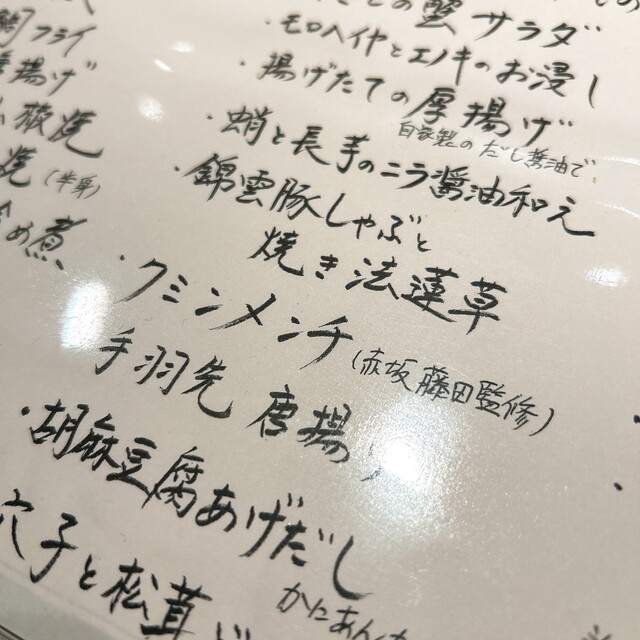 の蟹サラダ
・モロヘイヤとエノキのお浸し
・揚げたての厚揚げ
自家製のだし醤油で
・蛸と長芋のニラ醤油和え
・錦雲豚しゃぶと
焼き法蓮草
・クミンメンチ(赤坂藤田監修)
手羽先唐揚
・胡麻豆腐あげだし
かにあん
穴子と松茸
フライ
揚げ
焼(半身)
め煮